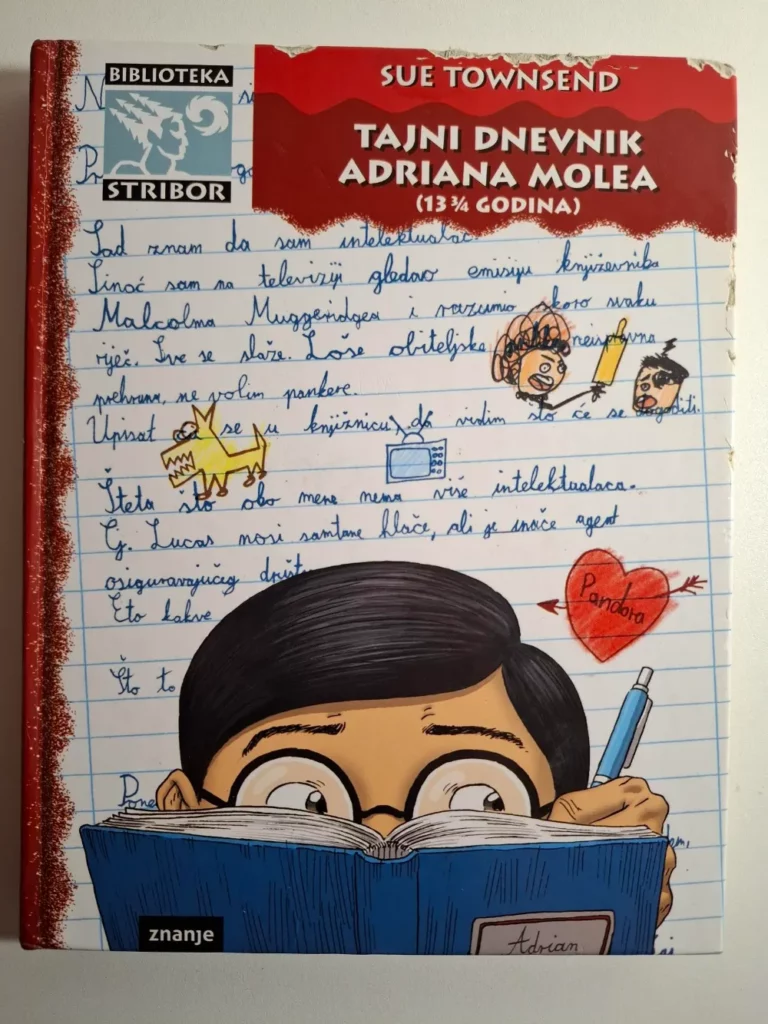 BIBLIOTEKA
STRIBOR
SUE TOWNSEND
TAJNI DNEVNIK
ADRIANA MOLEA
(13 ¾ GODINA)
Sad znam da sam intelektualac.
Sinoć sam na televiziji gledao emisiju književnika
Malcolma Muggeridgea i razumio skoro svaku
riječ. Sve se slaže. Loše obiteljske neispravna
prehrana, ne volim pankere.
Upisat ću se u knjižnicu da vidim što će se dogoditi.
Šteta što oko mene nema više intelektualaca.
G. Lucas nosi samtane hlače, ali je inače agent
osiguravajućeg društ
Eto kakve
Pandora
Što to
Pone
Adrian
znanje